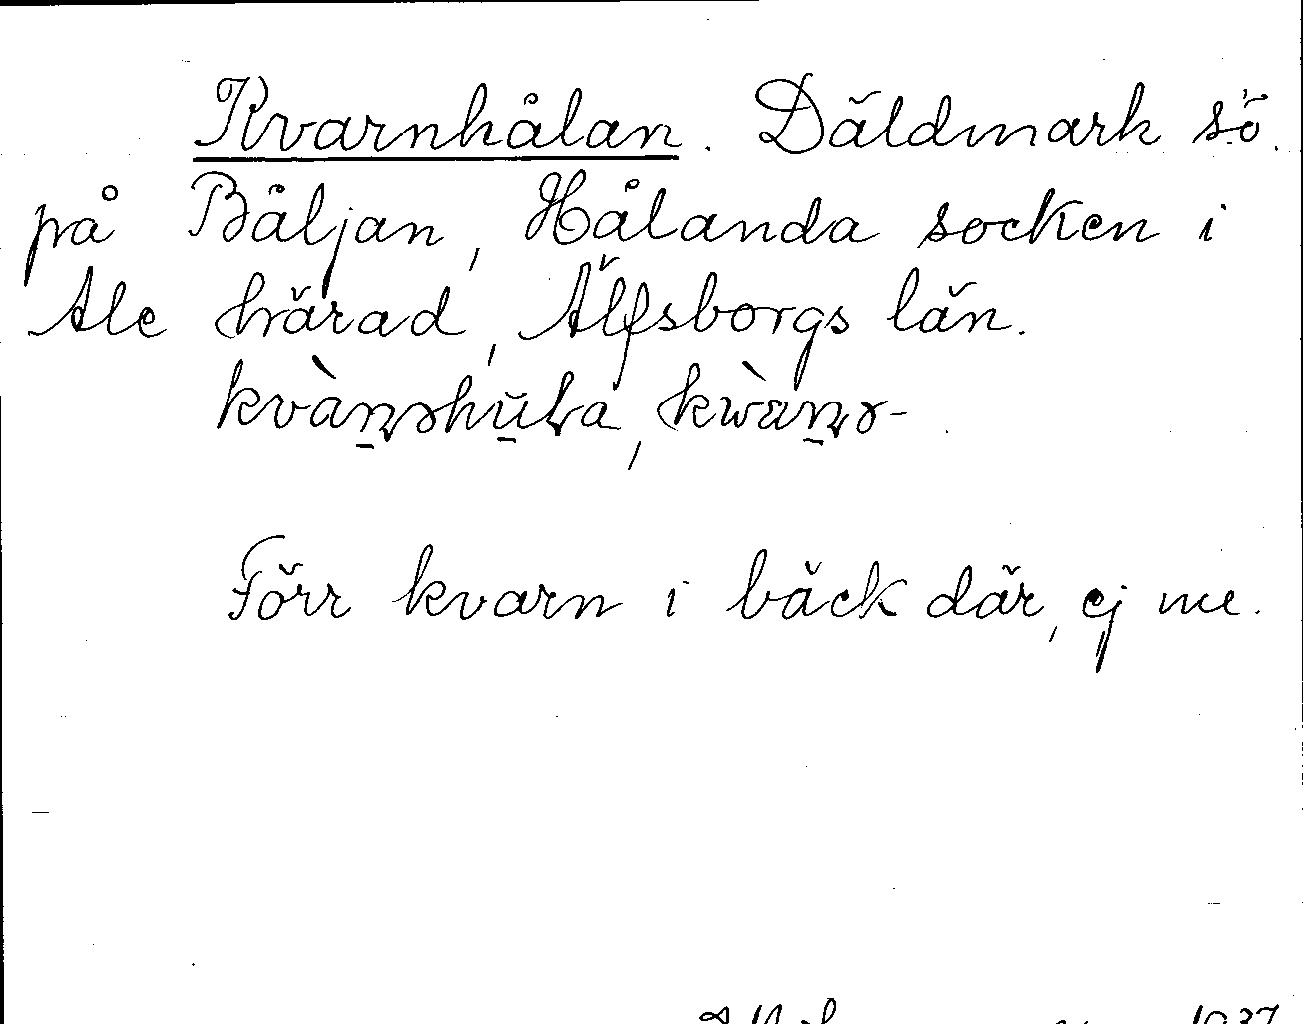 Kvarnhålan. Däldmark sö.
på Båljan, Hålanda socken i
Ale härad, Älfsborgs län.
Förr kvarn i bäck där, ej nu.
1937